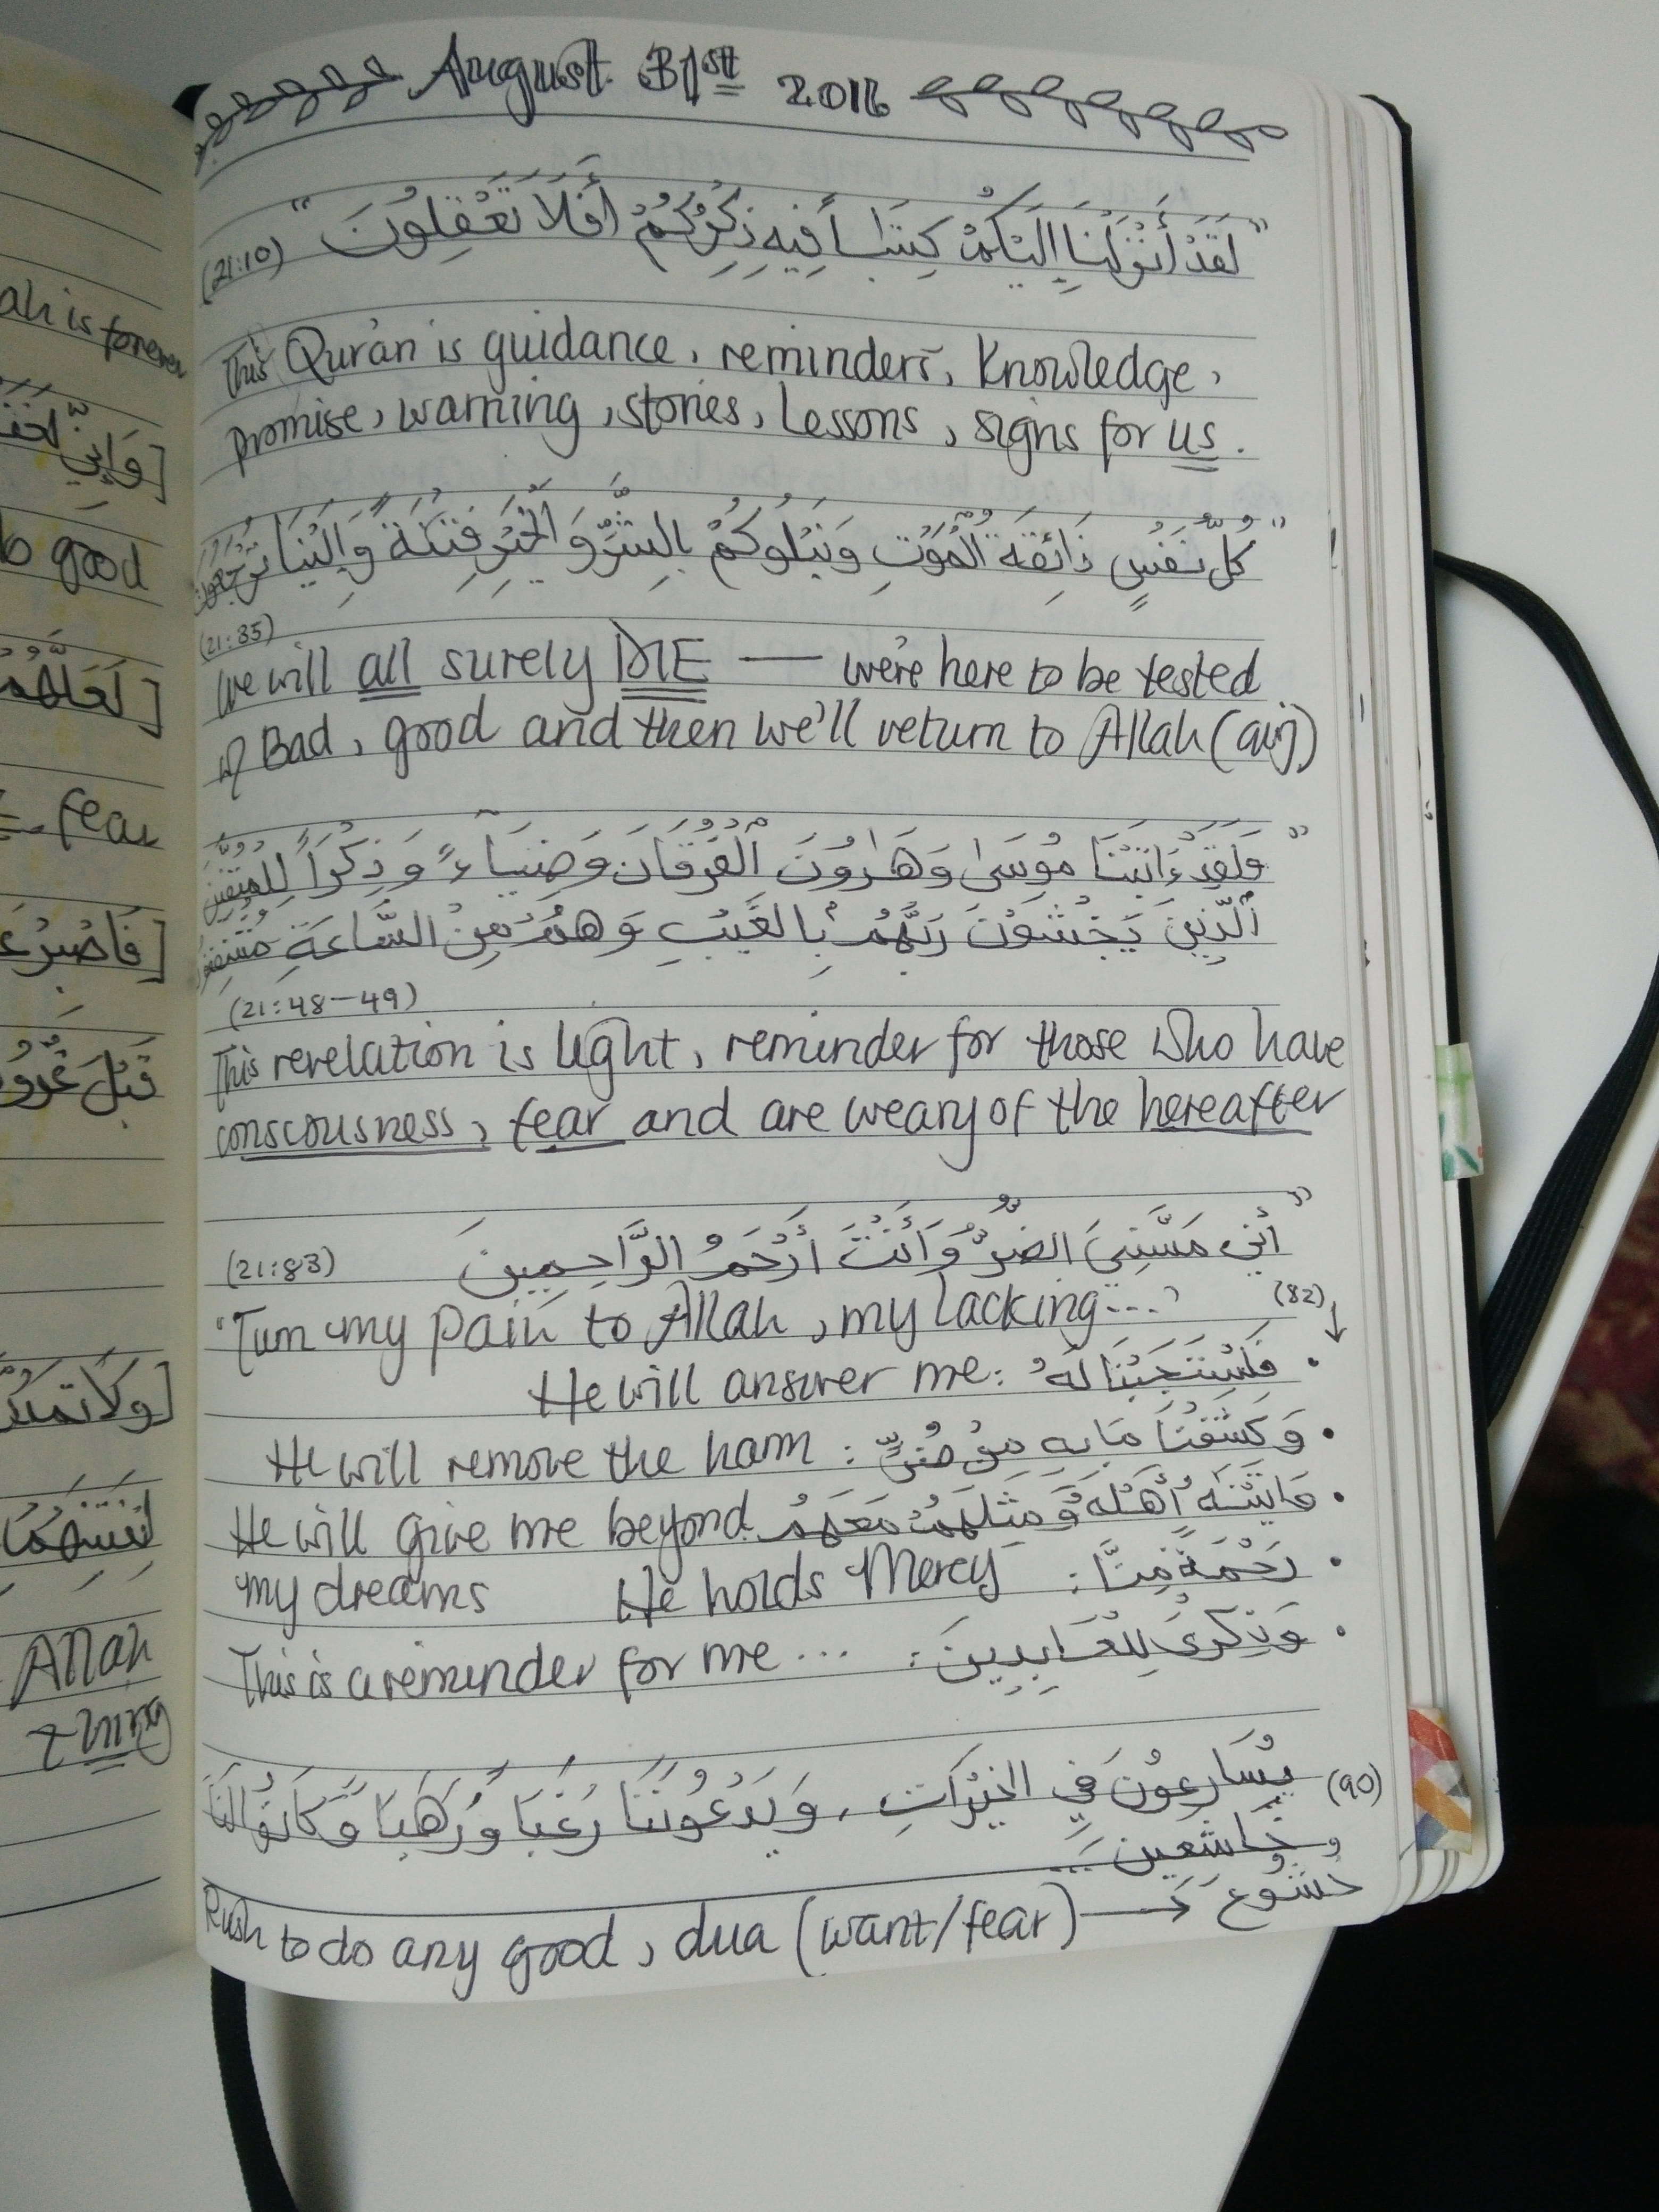 ah is forever
[وَإِنِّي لَغَفَّ
to good
[لَعَلَّهُمْ
fear
[فَاصْبِرْ عَ
قَبْلَ غُرُو
[وَلَا تَمُدَّ
Allah
August 31st 2016
"لَقَدْ أَنزَلْنَا إِلَيْكُمْ كِتَـٰبًا فِيهِ ذِكْرُكُمْ أَفَلَا تَعْقِلُونَ" (21:10)
This Qur'an is guidance, reminders, knowledge,
promise, warning, stories, lessons, signs for us.
"كُلُّ نَفْسٍ ذَائِقَةُ الْمَوْتِ وَنَبْلُوكُمْ بِالشَّرِّ وَالْخَيْرِ فِتْنَةً وَإِلَيْنَا تُرْجَعُونَ
(21:35)
We will all surely DIE — we're here to be tested
w/ Bad, good and then we'll return to Allah (awj)
"وَلَقَدْ ءَاتَيْنَا مُوسَىٰ وَهَـٰرُونَ ٱلْفُرْقَانَ وَضِيَاءً وَذِكْرًا لِلْمُتَّقِينَ
ٱلَّذِينَ يَخْشَوْنَ رَبَّهُمْ بِالْغَيْبِ وَهُمْ مِنَ السَّاعَةِ مُشْفِقُونَ
(21:48-49)
This revelation is light, reminder for those who have
conscousness, fear and are weary of the hereafter
"أَنِّي مَسَّنِيَ الضُّرُّ وَأَنْتَ أَرْحَمُ الرَّاحِمِينَ (21:83)
"Turn my pain to Allah, my lacking...." (82) ↓
• فَاسْتَجَبْنَا لَهُ : He will answer me
• وَكَشَفْنَا مَا بِهِ مِنْ ضُرٍّ : He will remove the harm
• وَءَاتَيْنَـٰهُ أَهْلَهُ وَمِثْلَهُمْ مَعَهُمْ He will give me beyond
my dreams
• رَحْمَةً مِنَّا : He holds Mercy
• وَذِكْرَىٰ لِلْعَابِدِينَ : This is a reminder for me ...
(90) يُسَارِعُونَ فِي الْخَيْرَاتِ ، وَيَدْعُونَنَا رَغَبًا وَرَهَبًا وَكَانُوا لَنَا
خَاشِعِينَ ...
Rush to do any good, dua (want/fear) → خُشُوع